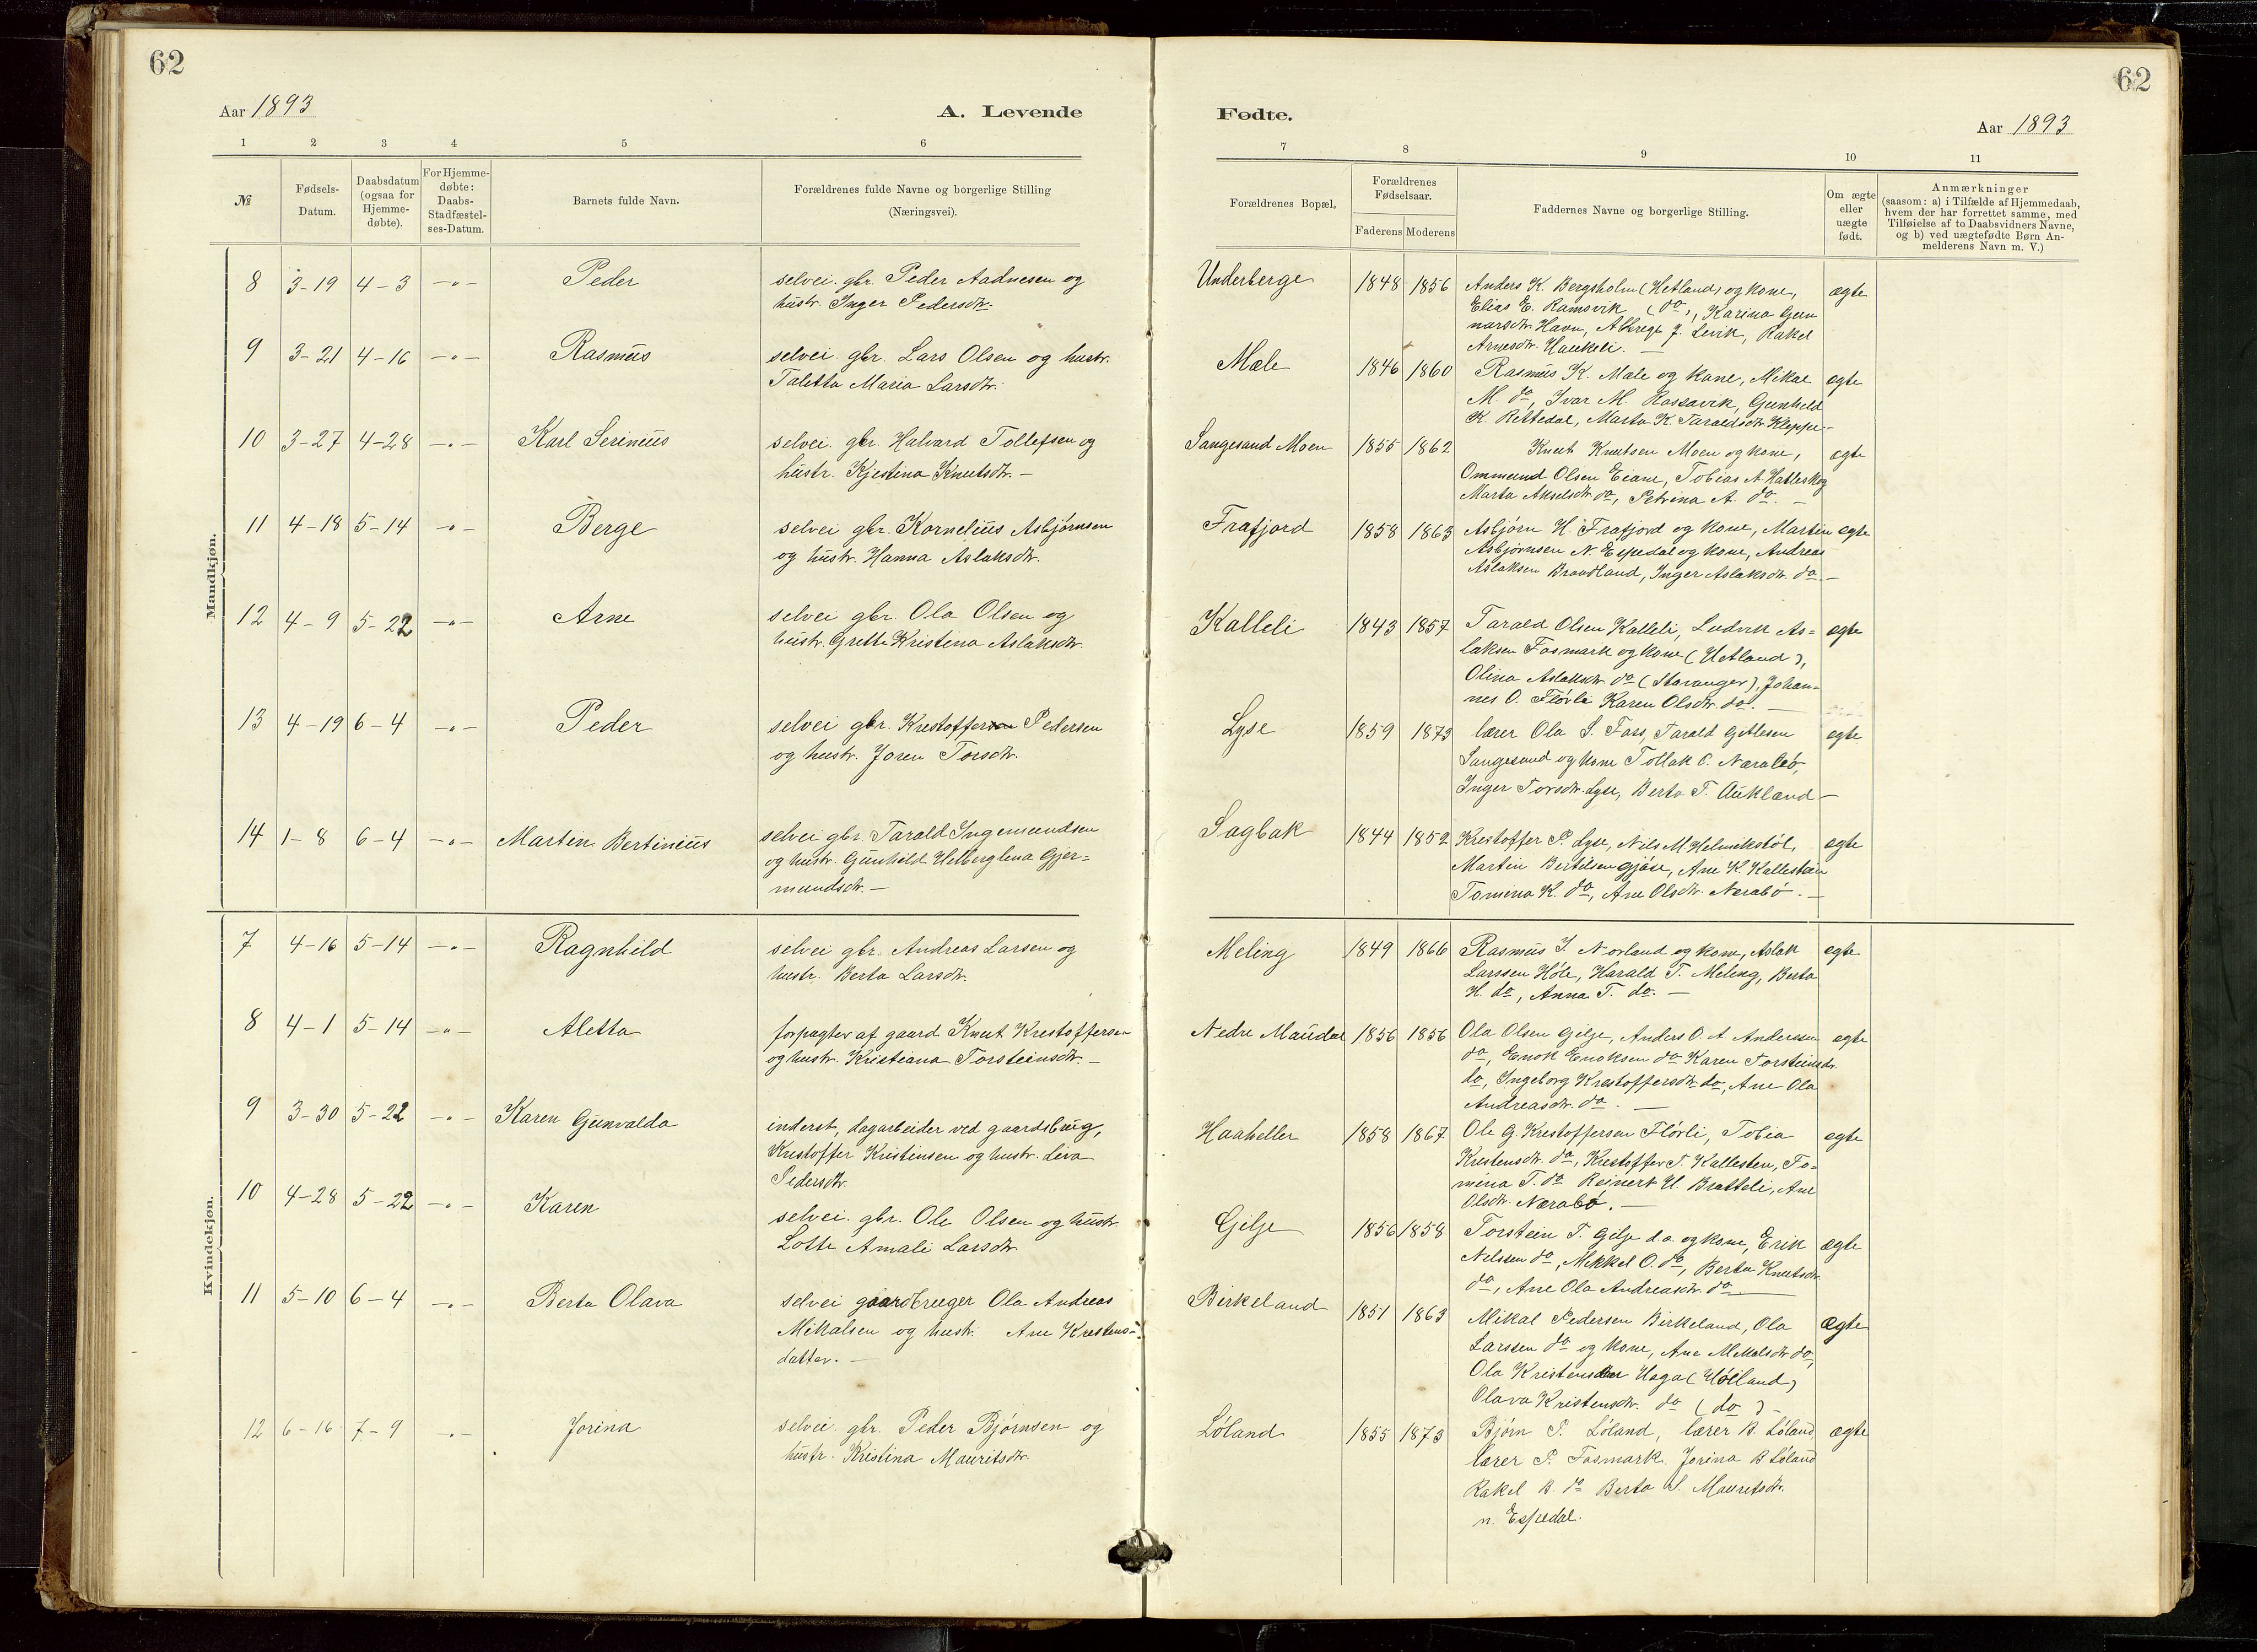 62
Aar 1893
A. Levende
1 2 3 4 5 6
№
Fødsels-Datum.
Daabsdatum (ogsaa for Hjemme-døbte).
For Hjemme-døbte: Daabs-Stadfæstel-ses-Datum.
Barnets fulde Navn.
Forældrenes fulde Navne og borgerlige Stilling
(Næringsvei).
Mandkjøn.
8 3-19 4-3 -"- Peder selvei. gbr. Peder Aadnesen og
hustr. Inger Pedersdtr.
9 3-21 4-16 -"- Rasmus selvei. gbr. Lars Olsen og hustr.
Taletta Maria Larsdtr.
10 3-27 4-28 -"- Karl Serinius selvei. gbr. Halvard Tollefsen og
hustr. Kjestina Knutsdtr. -
11 4-18 5-14 -"- Berge selvei gbr. Kornelius Asbjørnsen
og hustr. Hanna Aslaksdtr.
12 4-9 5-22 -"- Arne selvei gbr. Ola Olsen og
hustr. Grette Kristena Aslaksdtr.
13 4-19 6-4 -"- Peder selvei gbr. Krestoffer Pedersen
og hustr. Joren Torsdtr.
14 1-8 6-4 -"- Martin Bertinius selvei gbr. Tarald Ingemundsen
og hustr. Gunhild Helberglena Gjer=
mundsdtr. -
Kvindekjøn.
7 4-16 5-14 -"- Ragnhild selvei gbr. Andreas Larsen og
hustr. Berta Larsdtr.
8 4-1 5-14 -"- Aletta forpagter af gaard Knut Krestoffersen
og hustr. Kristiana Torsteinsdtr. -
9 3-30 5-22 -"- Karen Gunvalda inderst, dagarbeider ved gaardsbrug,
Krestoffer Kristensen og hustr. Leva
Pedersdtr.
10 4-28 5-22 -"- Karen selvei. gbr. Ole Olsen og hustr.
Lotte Amali Larsdtr
11 5-10 6-4 -"- Berta Olava selvei gaardbruger Ola Andreas
Mikalsen og hustr. Ane Krestens=
datter. -
12 6-16 7-9 -"- Jorina selvei. gbr. Peder Bjørnsen og
hustr. Kristina Mauritsdtr.
62
Fødte.
Aar 1893
7 8 9 10 11
Forældrenes Bopæl.
Forældrenes Fødselsaar.
Faderens Moderens
Faddernes Navne og borgerlige Stilling.
Om ægte eller uægte født.
Anmærkninger
(saasom: a) i Tilfælde af Hjemmedaab,
hvem der har forrettet samme, med
Tilføielse af to Daabsvidners Navne,
og b) ved uægtefødte Børn An-
melderens Navn m. V.)
Underberge 1848 1856 Anders K. Bergsholm (Hetland) og kone, ægte
Elias E. Ramsvik (do), Karina Gun
narsdtr. Havn, J. Levik, Rakel
Arnesdtr. Haukeli. -
Mæle 1846 1860 Rasmus K. Mæle og kone, Mikal egte
M. do, Ivar M. Rossavik, Gunhild
K. Rettedal, Marta K. Taraldsdtr. Kleppe -
Sangesand Moen 1855 1862 Knut Knutsen Moen og kone, egte
Ommund Olsen Eiane, Tobias A. Hatleskog
Marta Akselsdtr. do, Petrina A. do. -
Frafjord 1858 1863 Asbjørn H. Frafjord og kone, Martin egte
Asbjørnsen N. Espedal og kone, Andreas
Aslaksen Brandland, Inger Aslaksdtr. do. -
Kalleli 1843 1857 Tarald Olsen Kalleli, Ludvik As= egte
laksen Fosmark og kone (Hetland),
Olina Aslaksdtr. do (Stavanger), Johan=
nes O. Flörli Karen Olsdtr. do. -
Lyse 1859 1873 lærer Ola S. Foss, Tarald Gitlesen egte
Sangesand og kone Tollak O. Nærabö,
Inger Torsdtr. Lyse, Berta T. Aukland -
Sagbak 1844 1852 Krestoffer P. Lyse, Nils M Helmikstöl, egte
Martin Bertilsen gjöse, Ane K. Kallestein
Tomina K. do, Ane Olsdtr. Nærabö. -
Meling 1849 1866 Rasmus I. Norland og kone, Aslak egte
Larssen Höle, Harald T. Meling, Berta
H. do, Anna T. do. -
Nedre Maudal 1856 1856 Ola Olsen Gilje, Anders O. A. Anderssen egte
do, Enok Enoksen do Karen Torsteinsdtr.
do, Ingeborg Krestoffersdtr do, Ane Ola
Andreasdtr. do. -
Haaheller 1858 1867 Ole G. Krestoffersen Flörli, Tobia egte
Krestensdtr. do, Krestoffer T. Kallesten, To=
mina T. do Reinert H. Bratteli, Ane
Olsdtr. Nærabö. -
Gilje 1856 1858 Torstein T. Gilje d.a. og kone, Erik ægte
Nilssen do, Mikkel O. do, Berta Knutsdtr.
do, Ane Ola Andreasdtr. do
Birkeland 1851 1863 Mikal Pedersen Birkeland, Ola Ægte
Larssen do og kone, Ane Mikalsdtr do,
Ola Kristensen Haga (Höiland)
Olava Kristensdtr. do (do) -
Löland 1855 1873 Bjørn P. Löland, lærer B. Löland ægte
lærer P. Fosmark. Jorina B Löland
Rakel B. do Berta S. Mauritsdtr.
n. Espedal.